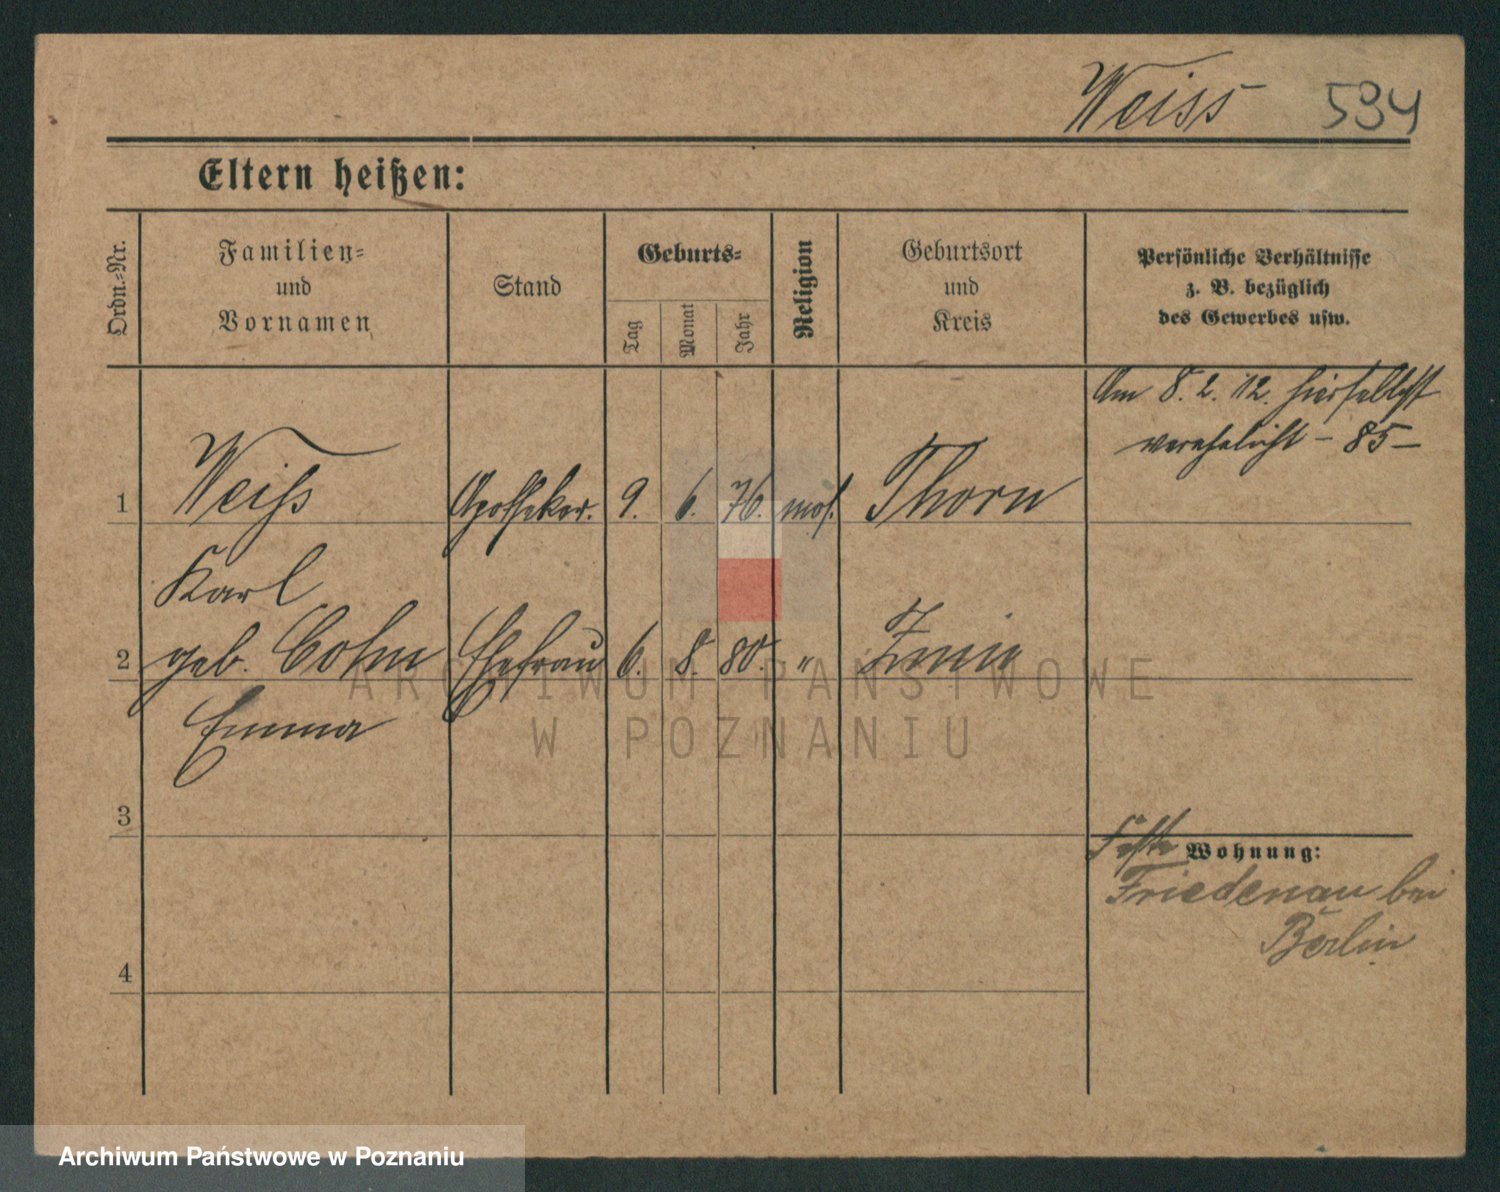 Weiss 594
Eltern heißen:
Ordn.-Nr.
Familien-
und
Vornamen
Stand
Geburts-
Tag
Monat
Jahr
Religion
Geburtsort
und
Kreis
Persönliche Verhältnisse
z. B. bezüglich
des Gewerbes usw.
Am 8. 2. 12. hierselbst
verehelicht – 85 –
1 Weiss Apotheker. 9. 6. 76. mos. Thorn
Karl
2 geb. Cohn Ehefrau 6. 8. 80. " Znin
Emma
3
Wohnung:
Friedenau bei
Berlin
4
ARCHIWUM PAŃSTWOWE
W POZNANIU
Archiwum Państwowe w Poznaniu